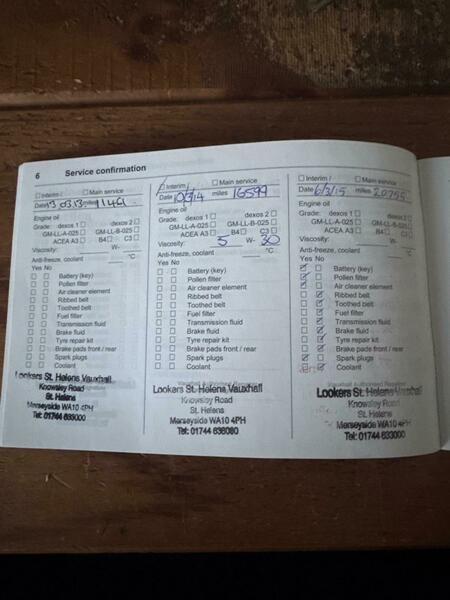 6 Service confirmation
Interim / Main service
Date 13 03 13 miles 11461
Engine oil
Grade: dexos 1 dexos 2
GM-LL-A-025 GM-LL-B-025
ACEA A3 B4 C3
Viscosity: W-
Anti-freeze, coolant °C
Yes No
Battery (key)
Pollen filter
Air cleaner element
Ribbed belt
Toothed belt
Fuel filter
Transmission fluid
Brake fluid
Tyre repair kit
Brake pads front / rear
Spark plugs
Coolant
Lookers St. Helens Vauxhall
Knowsley Road
St. Helens
Merseyside WA10 4PH
Tel: 01744 633000
Interim / Main service
Date miles 16599
Engine oil
Grade: dexos 1 dexos 2
GM-LL-A-025 GM-LL-B-025
ACEA A3 B4 C3
Viscosity: 5 W- 30
Anti-freeze, coolant °C
Yes No
Battery (key)
Pollen filter
Air cleaner element
Ribbed belt
Toothed belt
Fuel filter
Transmission fluid
Brake fluid
Tyre repair kit
Brake pads front / rear
Spark plugs
Coolant
Lookers St. Helens Vauxhall
Knowsley Road
St. Helens
Merseyside WA10 4PH
Tel: 01744
Interim / Main service
Date 6/3/15 miles 20755
Engine oil
Grade: dexos 1 dexos 2
GM-LL-A-025 GM-LL-B-025
ACEA A3 B4 C3
Viscosity: W-
Anti-freeze, coolant °C
Yes No
Battery (key)
Pollen filter
Air cleaner element
Ribbed belt
Toothed belt
Fuel filter
Transmission fluid
Brake fluid
Tyre repair kit
Brake pads front / rear
Spark plugs
Coolant
Vauxhall Authorised Repairer
Lookers St. Helens Vauxhall
Knowsley Road
St. Helens
Merseyside WA10 4PH
Tel: 01744 633000